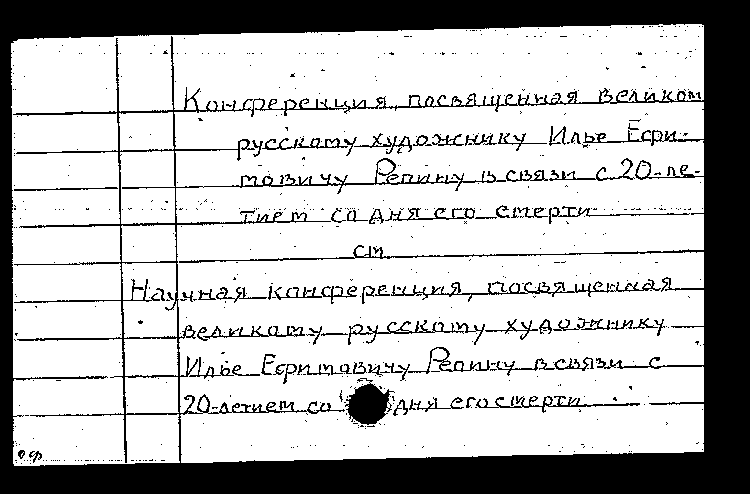 Конференция, посвященная великом
русскому художнику Илье Ефи-
мовичу Репину в связи с 20-ле-
тием со дня его смерти
см.
Научная конференция, посвященная
великому русскому художнику
Илье Ефимовичу Репину в связи с
20-летием со дня его смерти
оф